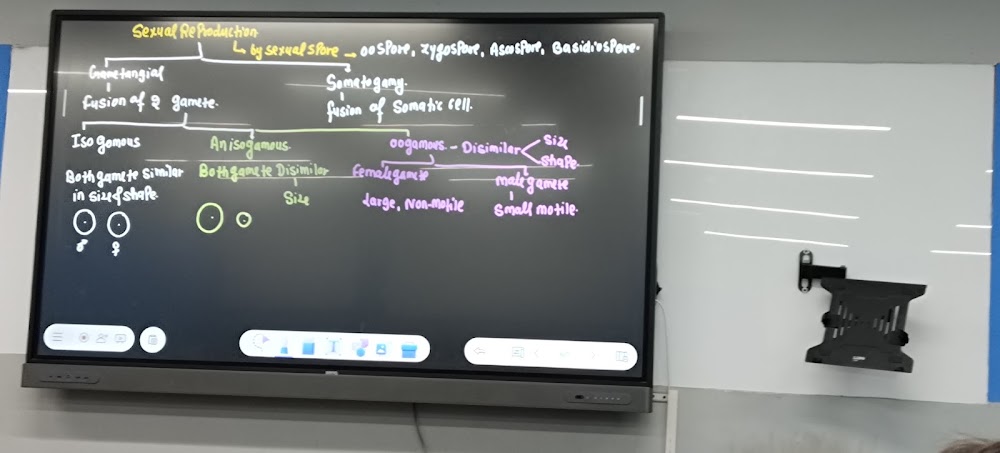 Sexual Reproduction
↳ by sexual spore → oospore, zygospore, Ascospore, Basidiospore.
Gametangial
Somatogamy.
fusion of 2 gamete.
fusion of Somatic cell.
Isogamous
Anisogamous
oogamous - Disimilar
Size
Shape.
Both gamete Similar
in size & shape.
Both gamete Disimilar
Size
Female gamete
Large, Non-motile
Male gamete
Small motile.
♂ ♀